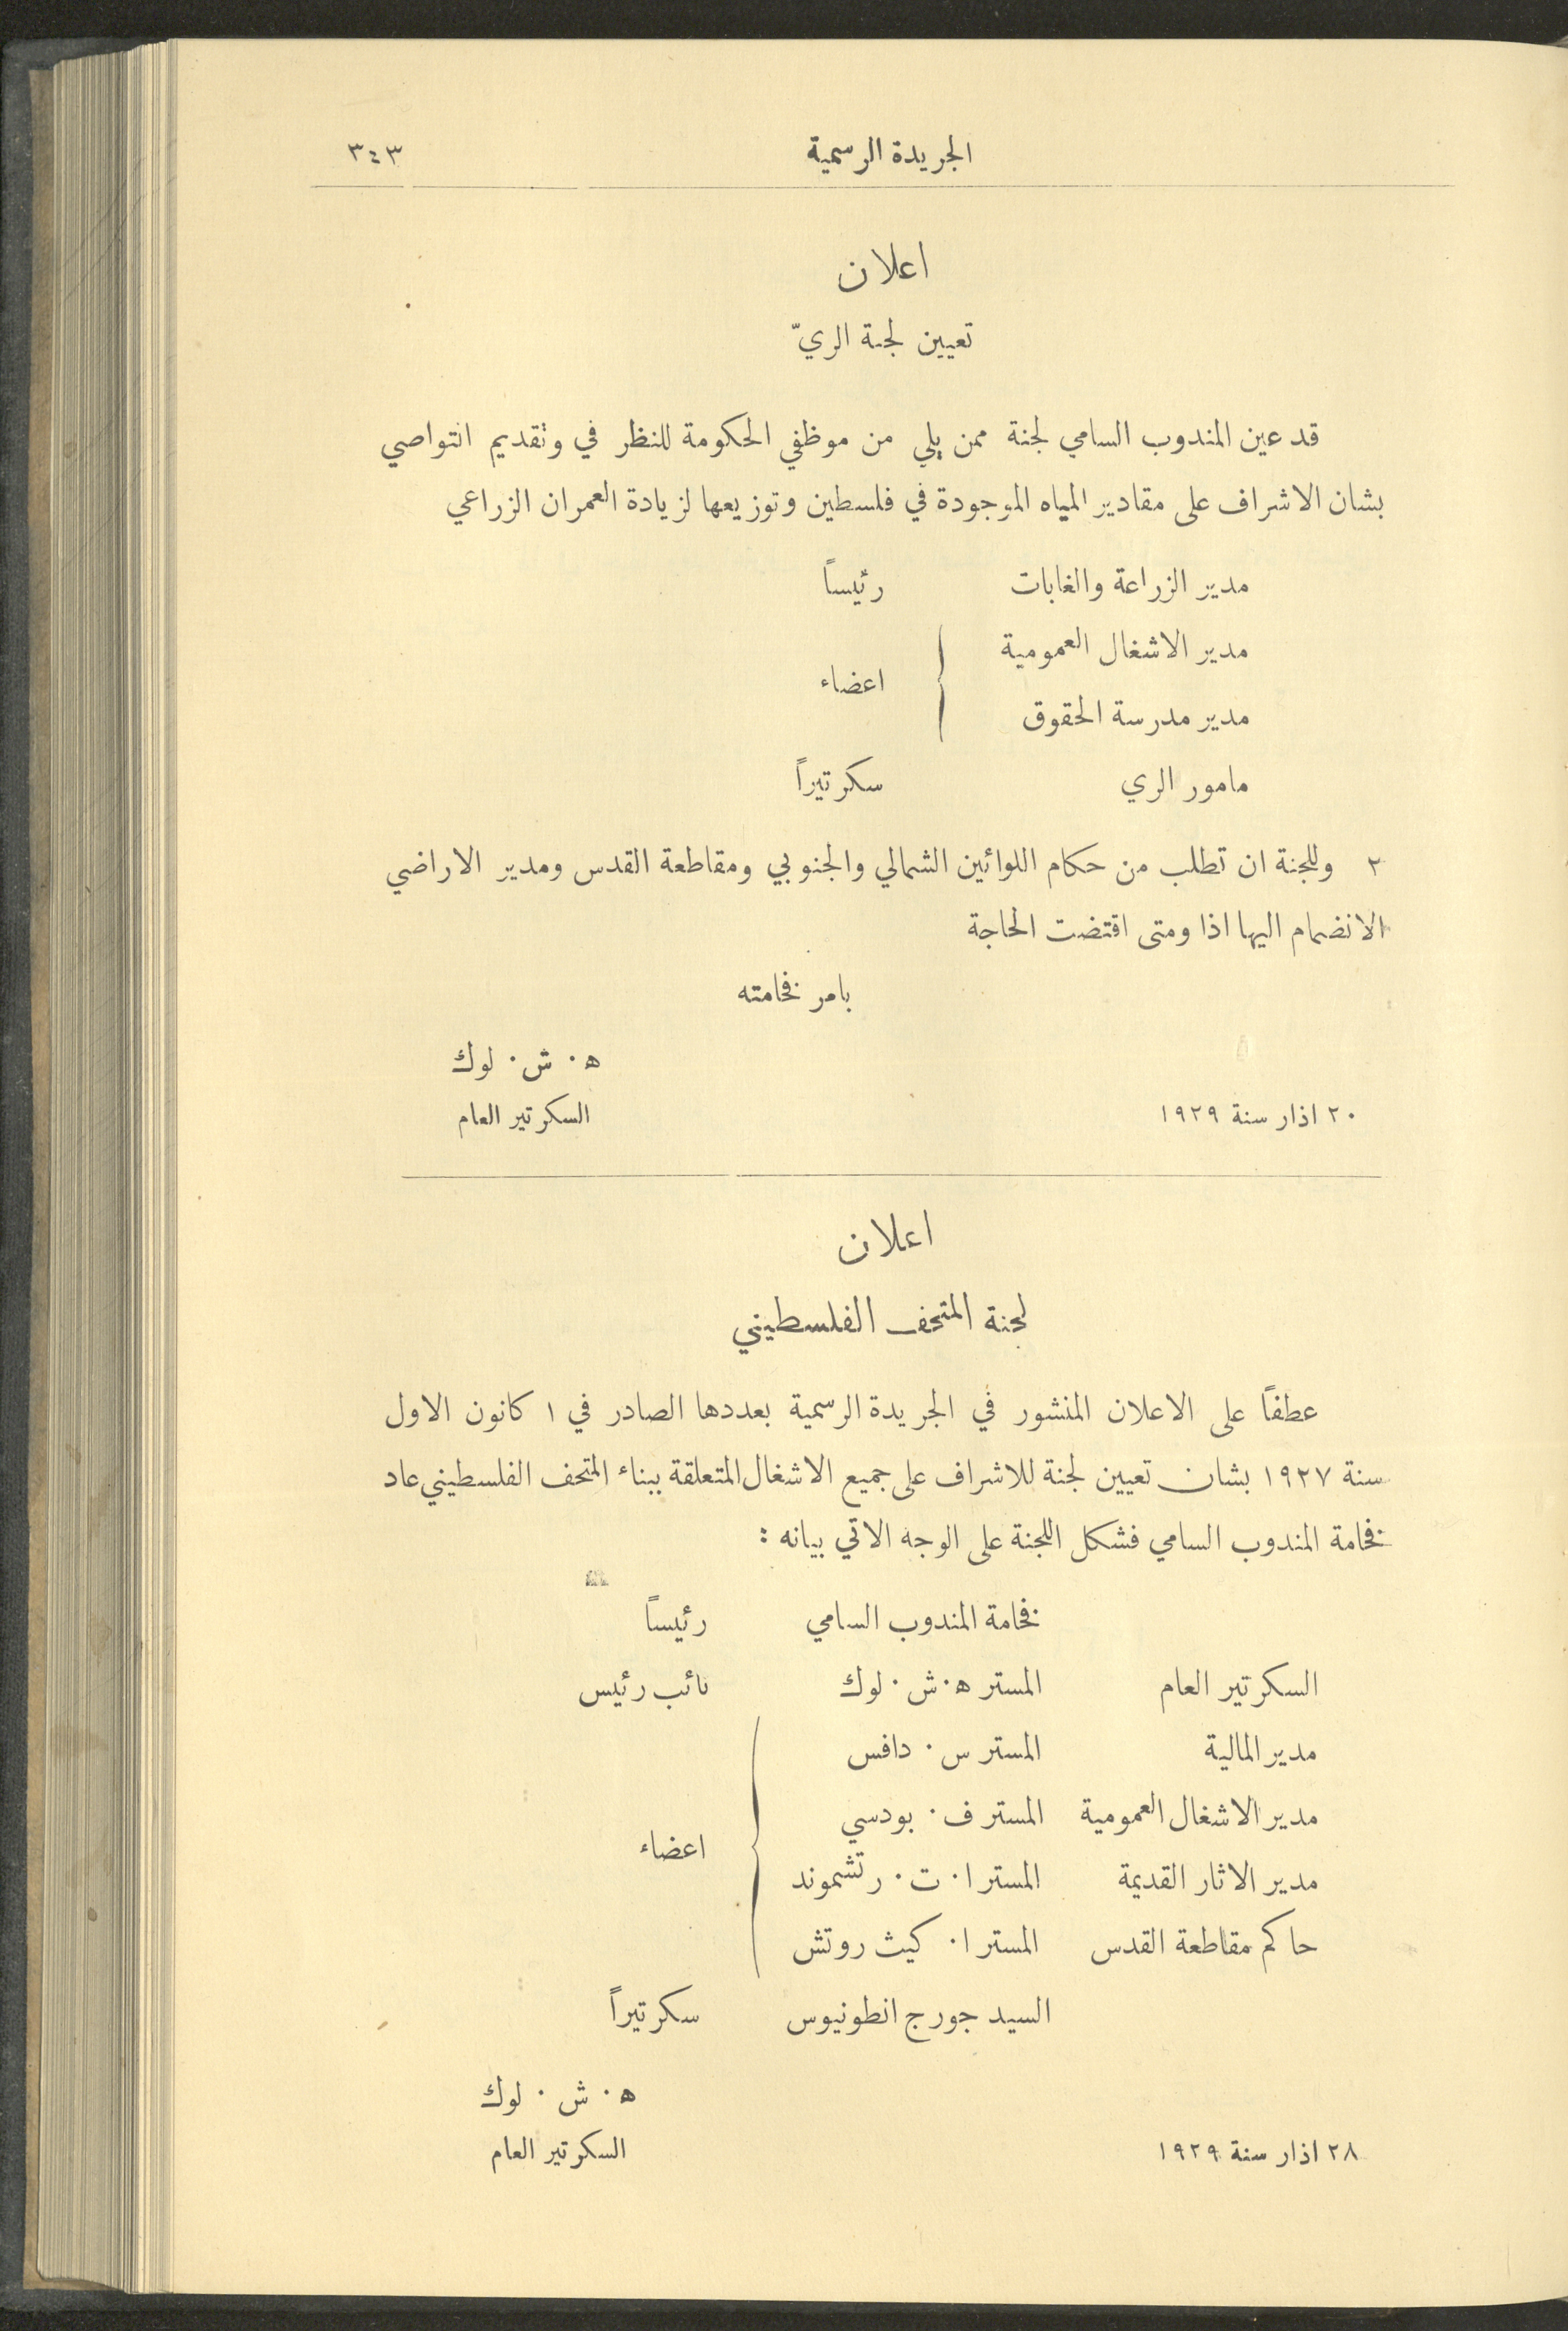 الجريدة الرسمية ٣٤٣
اعلان
تعيين لجنة الريّ
قد عين المندوب السامي لجنة ممن يلي من موظفي الحكومة للنظر في وتقديم التواصي
بشان الاشراف على مقادير المياه الموجودة في فلسطين وتوزيعها لزيادة العمران الزراعي
مدير الزراعة والغابات رئيساً
مدير الاشغال العمومية
اعضاء
مدير مدرسة الحقوق
مامور الري سكرتيراً
٢ وللجنة ان تطلب من حكام اللوائين الشمالي والجنوبي ومقاطعة القدس ومدير الاراضي
الانضمام اليها اذا ومتى اقتضت الحاجة
بامر فخامته
ه. ش. لوك
٢٠ اذار سنة ١٩٢٩ السكرتير العام
اعلان
لجنة المتحف الفلسطيني
عطفاً على الاعلان المنشور في الجريدة الرسمية بعددها الصادر في ١ كانون الاول
سنة ١٩٢٧ بشان تعيين لجنة للاشراف على جميع الاشغال المتعلقة ببناء المتحف الفلسطيني عاد
فخامة المندوب السامي فشكل اللجنة على الوجه الاتي بيانه :
فخامة المندوب السامي رئيساً
السكرتير العام المستر ه. ش. لوك نائب رئيس
مدير المالية المستر س. دافس
مدير الاشغال العمومية المستر ف. بودسي
اعضاء
مدير الاثار القديمة المستر ا. ت. رتشموند
حاكم مقاطعة القدس المستر ا. كيث روتش
السيد جورج انطونيوس سكرتيراً
ه. ش. لوك
٢٨ اذار سنة ١٩٢٩ السكرتير العام